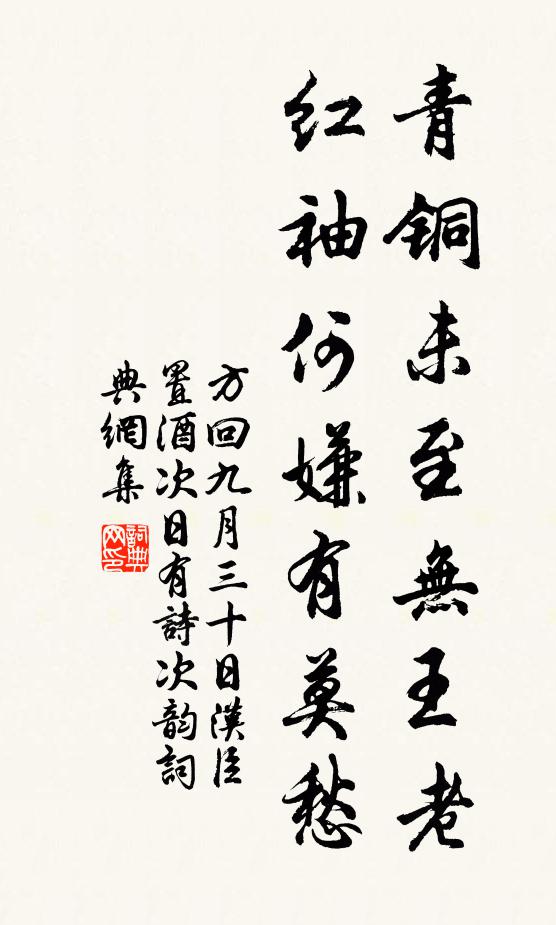 青铜未至無王老
红袖何嫌有莫愁
方回九月三十日漢臣
置酒次日有詩次韵詞
典網集
詞典
网印